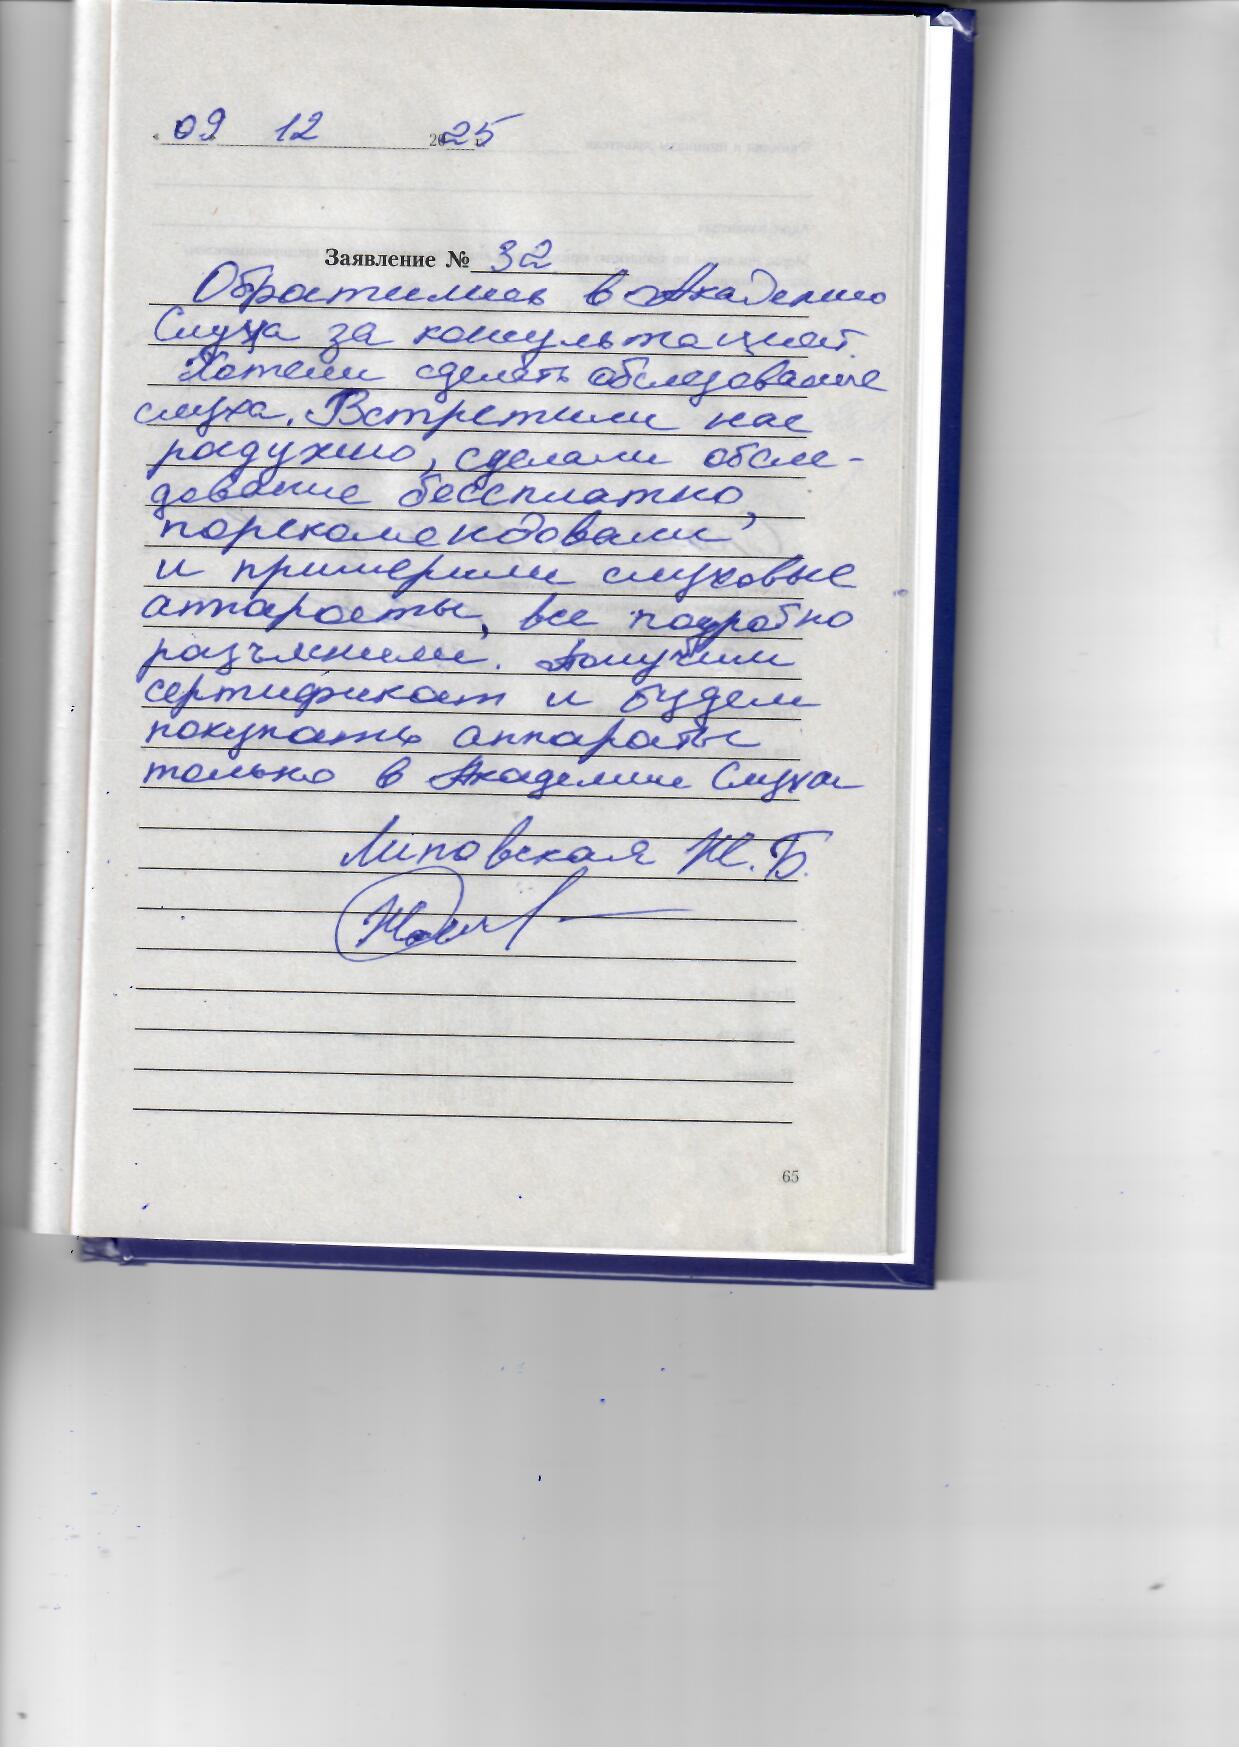 « 09 » 12 2025 г.
Заявление № 32
Обратились в Академию
Слуха за консультацией.
Хотели сделать обследование
слуха. Встретили нас
радужно, сделали обсле-
дование бессплатно,
порекомендовали
и примерили слуховые
аппараты, все подробно
разъяснили. Получили
сертификат и будем
покупать аппараты
только в Академии Слуха
Липовская Ж.Б.
65